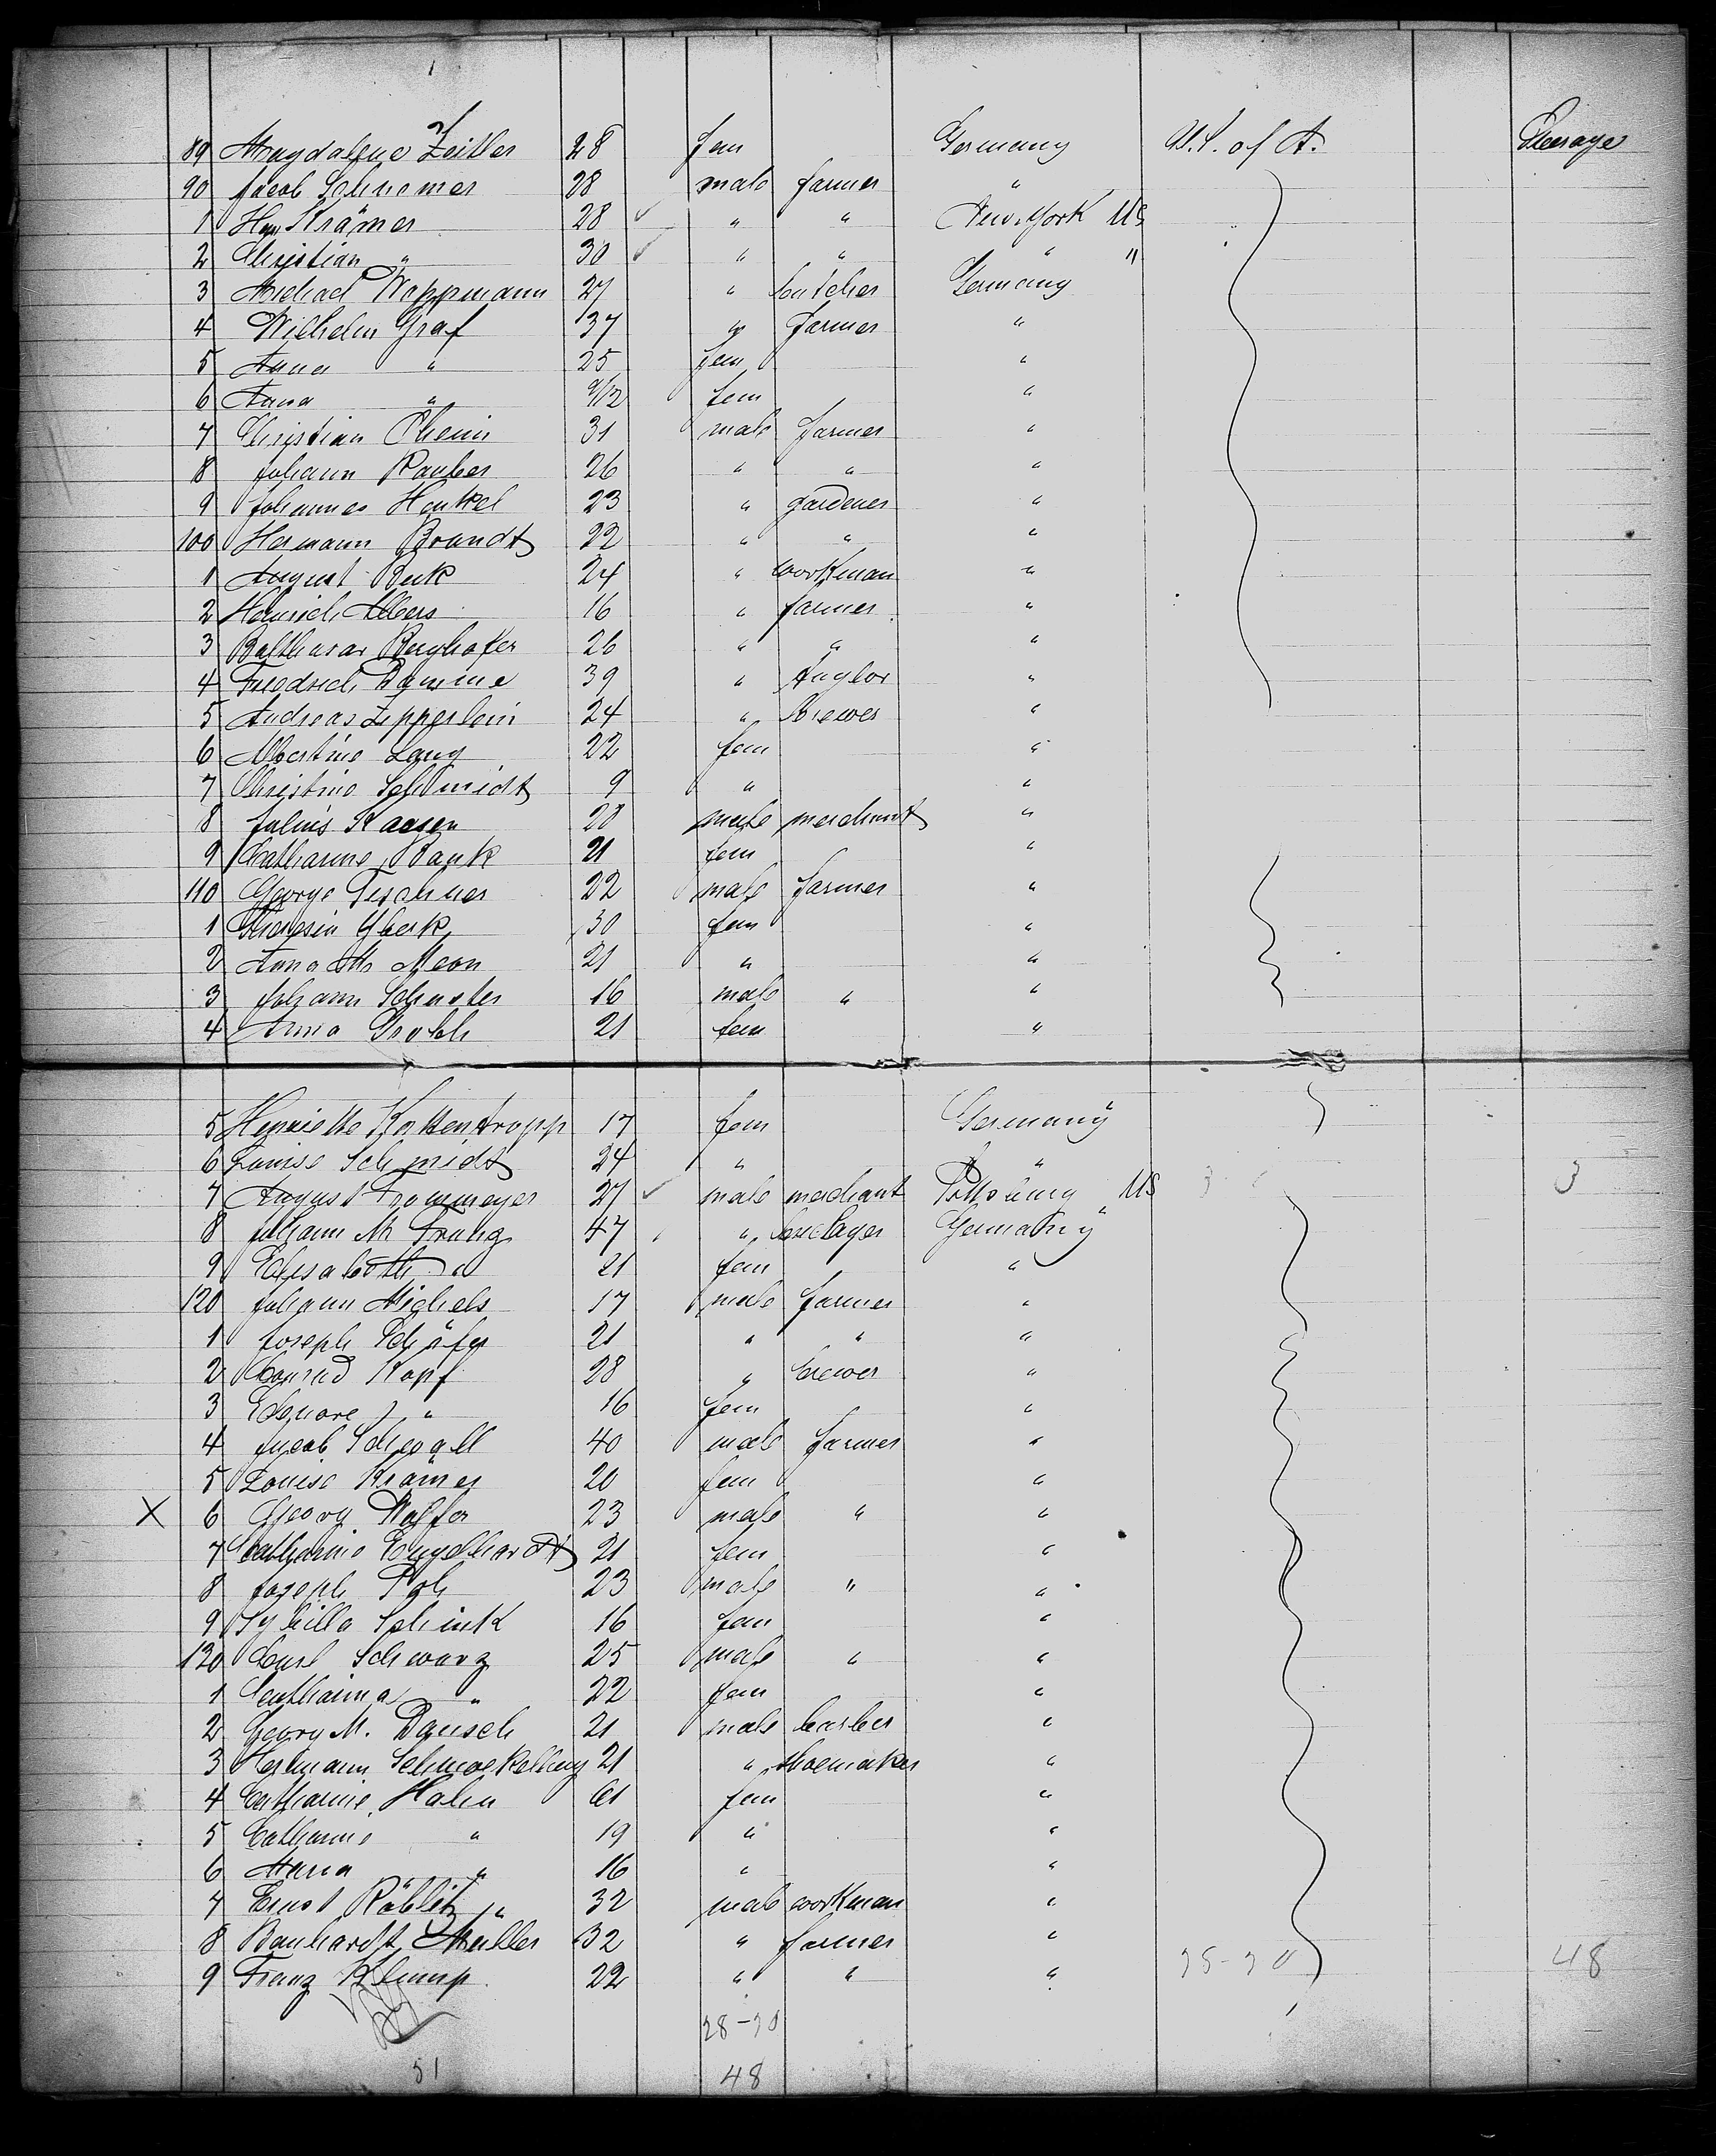 89 Magdalene Zeitler 28 fem Germany U.S. of A. Steerage
90 Jacob Schramer 28 male farmer "
1 Hy Krämer 28 ✓ " " New-York US
2 Christian " 30 ✓ " " " "
3 Michael Woppmann 27 " butcher Germany
4 Wilhelm Graf 37 " farmer "
5 Anna " 25 fem "
6 Anna " 9/12 fem "
7 Christian Rhein 31 male farmer "
8 Johann Rauber 26 " " "
9 Johannes Henkel 23 " gardener "
100 Hermann Brandt 22 " " "
1 August Beck 24 " workman "
2 Heinrich Albers 16 " farmer "
3 Balthasar Berghofer 26 " " "
4 Friedrich Damme 39 " taylor "
5 Andreas Zipperlein 24 " brewer "
6 Albertine Lang 22 fem "
7 Christine Schmidt 9 " "
8 Julius Kaesen 20 male merchant "
9 Catharine Bank 21 fem "
110 George Teschner 22 male farmer "
1 Theresia 30 fem "
2 Anna M. Meon 21 " "
3 Johann Schuster 16 male " "
4 Anna 21 fem "
5 Henriette Kottentropp 17 fem Germany
6 Louise Schmidt 24 " "
7 August Frommeyer 27 ✓ male merchant Pittsburg US 3
8 Johann M. Franz 47 " bricklayer Germany
9 Elisabeth " 21 fem "
120 Johann Michels 17 male farmer "
1 Joseph Schäfer 21 " " "
2 Conrad Kopf 28 " brewer "
3 Elenore " 16 fem "
4 Jacob Schnell 40 male farmer "
5 Louise Krämer 20 fem "
X 6 Georg Wolfer 23 male " "
7 Catharine Engelhardt 21 fem "
8 Joseph 23 male " "
9 Sybilla Schink 16 fem "
130 Carl Schwarz 25 male " "
1 Catharina " 22 fem "
2 Georg M. Dausch 21 male barber "
3 Hermann Schmoekelberg 21 " shoemaker "
4 Catharine Hahn 61 fem "
5 Catharine " 19 " "
6 Maria " 16 " "
7 Ernst Röblitz " 32 male workman "
8 Banhardt Müller 32 " farmer "
9 Franz Klump 22 " " " 48
51 48